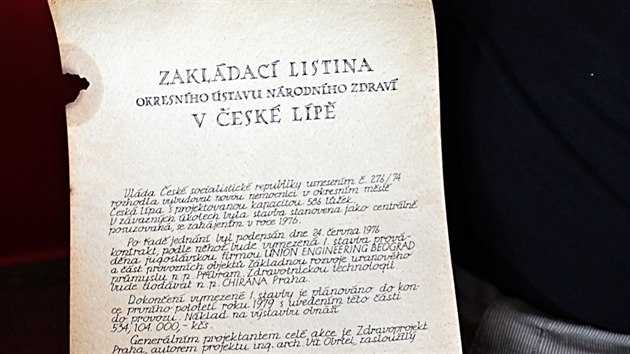 ZAKLÁDACÍ LISTINA
OKRESNÍHO ÚSTAVU NÁRODNÍHO ZDRAVÍ
V ČESKÉ LÍPĚ
Vláda České socialistické republiky usnesením č. 276/74
rozhodla vybudovat novou nemocnici v okresním městě
Česká Lípa s projektovanou kapacitou 586 lůžek.
V závazných úkolech byla stavba stanovena jako centrálně
posuzovaná, se zahájením v roce 1976.
Po řadě jednání byl podepsán dne 24. června 1976
kontrakt, podle něhož bude vymezená 1. stavba prová-
děna jugoslávskou firmou UNION ENGINEERING BEOGRAD
a část provozních objektů Základnou rozvoje uranového
průmyslu n. p. Příbram. Zdravotnickou technologii
bude dodávat n. p. CHIRANA Praha.
Dokončení vymezené 1. stavby je plánováno do kon-
ce prvního pololetí roku 1979 s uvedením této části
do provozu. Náklad na výstavbu obnáší
534,104.000,- kčs.
Generálním projektantem celé akce je Zdravoprojekt
Praha, autorem projektu ing. arch. Vít Obrtel, zasloužilý